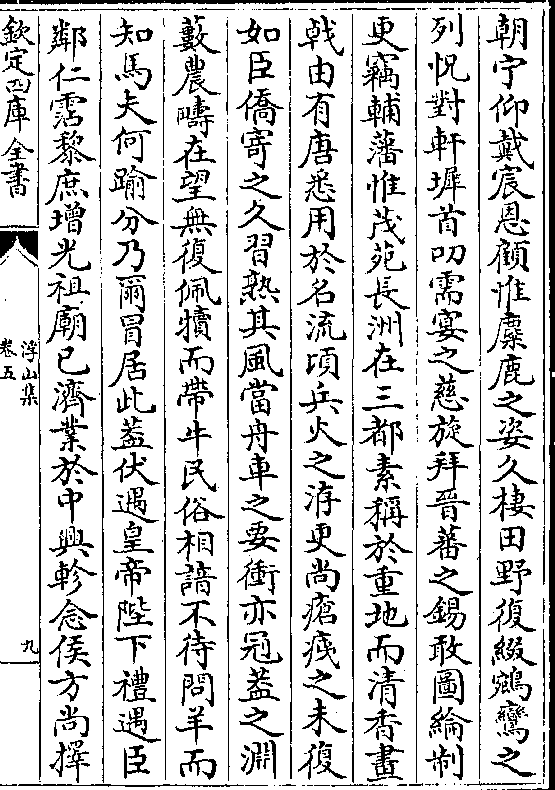 朝宁仰戴宸恩顧惟麋鹿之姿久棲田野復綴鵷鸞之
列怳對軒墀首叨需宴之慈旋拜晉蕃之錫敢圖綸制
更竊輔藩惟茂苑長洲在三都素稱於重地而清香畫
㦸由有唐悉用於名流頃兵火之洊更尚瘡痍之未復
如臣僑寄之久習熟其風當舟車之要衝亦冠蓋之淵
藪農疇在望無復佩犢而帶牛民俗相諳不待問羊而
知馬夫何踰分乃爾冒居此蓋伏遇皇帝陛下禮遇臣
鄰仁霑黎庶增光祖廟已濟業於中興軫念侯方尚擇
欽定四庫全書
浮山集
卷五
九